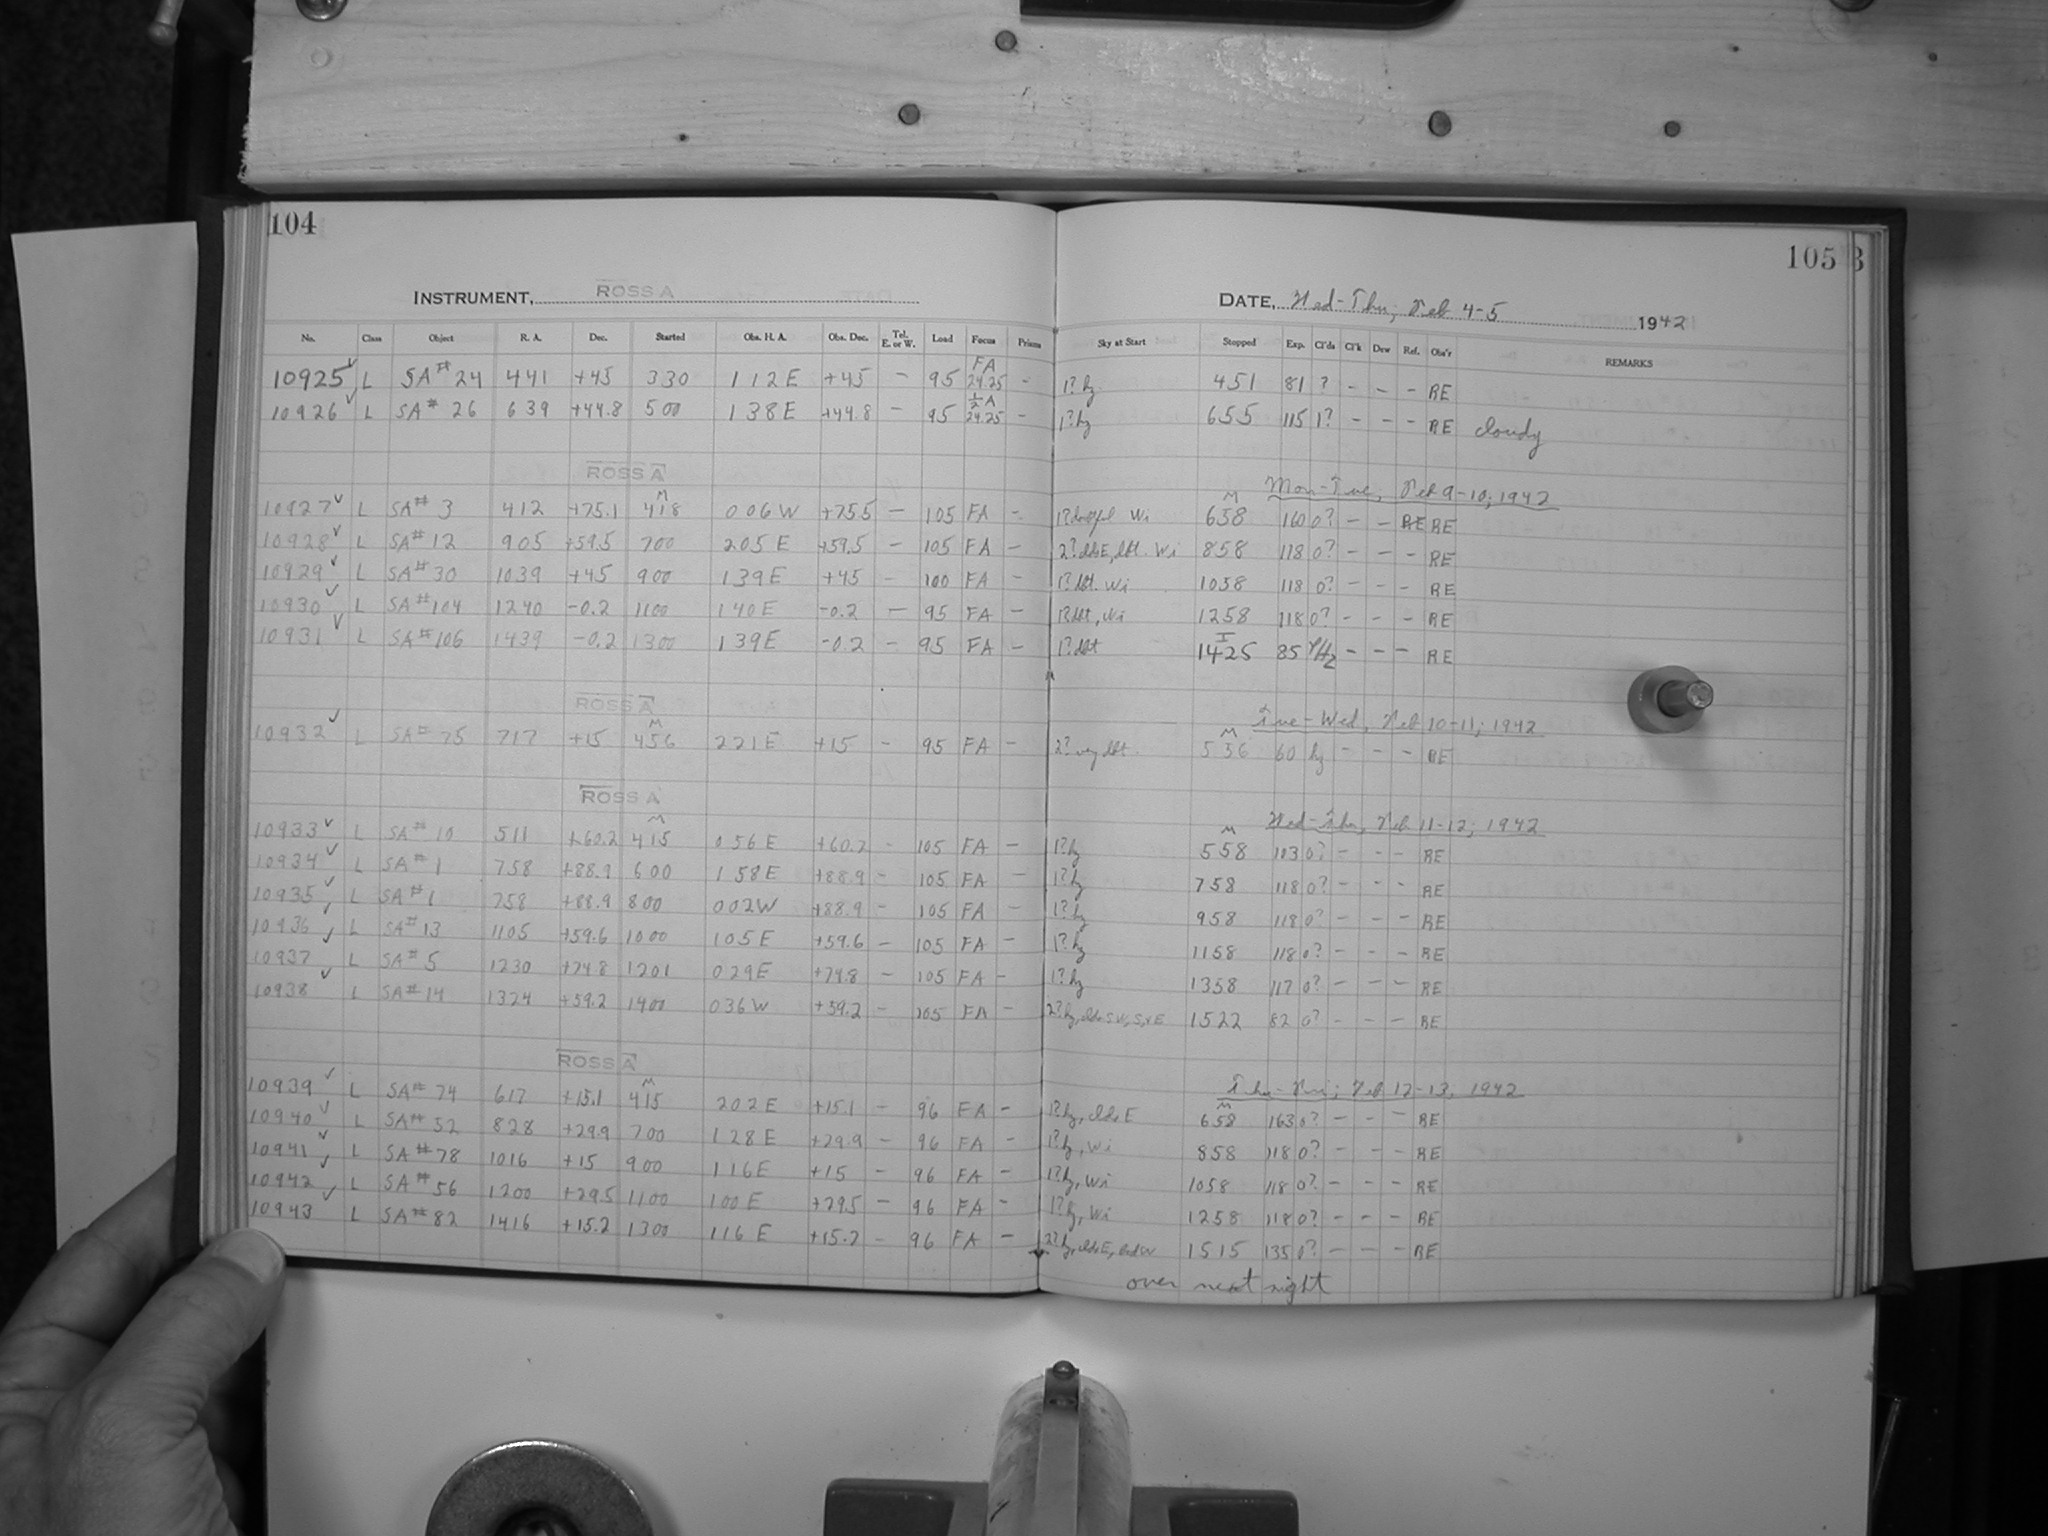 104
105
INSTRUMENT, ROSS A DATE, Wed-Thu; Feb 4-5 1942
No. Class Object R. A. Dec. Started Obs. H. A. Obs. Dec. Tel. E. or W. Load Focus Prisms Sky at Start Stopped Exp. Cl'ds Cl'k Dew Ref. Obs'r REMARKS
10925 L SA# 24 441 +45 330 112E +45 - 95 FA 24.25 - 1? hz 451 81 ? - - - RE
10926 L SA# 26 639 +44.8 500 138E +44.8 - 95 ½A 24.25 - 1? hz 655 115 1? - - - RE cloudy
ROSS A Mon-Tue, Feb 9-10; 1942
10927 L SA# 3 412 +75.1 M 418 006W +75.5 - 105 FA - Wi M 658 160 0? - - RE RE
10928 L SA# 12 905 +59.5 700 205E +59.5 - 105 FA - Wi 858 118 0? - - - RE
10929 L SA# 30 1039 +45 900 139E +45 - 100 FA - Wi 1058 118 0? - - - RE
10930 L SA# 104 1240 -0.2 1100 140E -0.2 - 95 FA - Wi 1258 118 0? - - - RE
10931 L SA# 106 1439 -0.2 1300 139E -0.2 - 95 FA - 1425 85 - - - RE
ROSS A Tue-Wed, Feb 10-11; 1942
10932 L SA# 75 717 +15 M 456 221E +15 - 95 FA - 2? very M 536 60 hz - - - RE
ROSS A Wed-Thu, Feb 11-12; 1942
10933 L SA# 10 511 +60.2 M 415 056E +60.2 - 105 FA - 1? hz M 558 103 0? - - - RE
10934 L SA# 1 758 +88.9 600 158E +88.9 - 105 FA - 1? hz 758 118 0? - - - RE
10935 L SA# 1 758 +88.9 800 002W +88.9 - 105 FA - 1? hz 958 118 0? - - - RE
10936 L SA# 13 1105 +59.6 1000 105E +59.6 - 105 FA - 1? hz 1158 118 0? - - - RE
10937 L SA# 5 1230 +74.8 1201 029E +74.8 - 105 FA - 1? hz 1358 117 0? - - - RE
10938 L SA# 14 1324 +59.2 1400 036W +59.2 - 105 FA - 2? hz, clds 1522 82 0? - - - RE
ROSS A Thu-Fri; Feb 12-13, 1942
10939 L SA# 74 617 +15.1 M 415 202E +15.1 - 96 FA - 1? hz, clds E M 658 163 0? - - - RE
10940 L SA# 52 828 +29.9 700 128E +29.9 - 96 FA - 1? hz, Wi 858 118 0? - - - RE
10941 L SA# 78 1016 +15 900 116E +15 - 96 FA - 1? hz, Wi 1058 118 0? - - - RE
10942 L SA# 56 1200 +29.5 1100 100E +29.5 - 96 FA - 1? hz, Wi 1258 118 0? - - - RE
10943 L SA# 82 1416 +15.2 1300 116E +15.2 - 96 FA - 2? hz, clds E, 1515 135 0? - - - RE
over next night